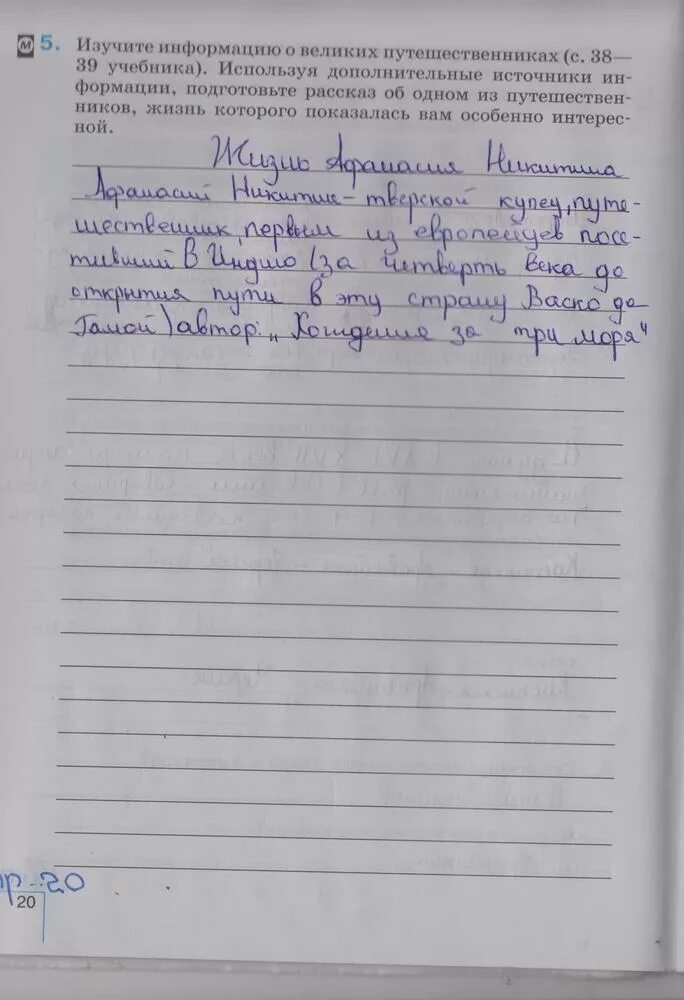 м 5. Изучите информацию о великих путешественниках (с. 38—
39 учебника). Используя дополнительные источники ин-
формации, подготовьте рассказ об одном из путешествен-
ников, жизнь которого показалась вам особенно интерес-
ной.
Жизнь Афанасия Никитина
Афанасий Никитин - тверской купец, путе-
шественник, первым из европейцев посе-
тивший В Индию (за четверть века до
открытия пути в эту страну Васко да
Гамой) автор: „Хождения за три моря"
р. 20
20